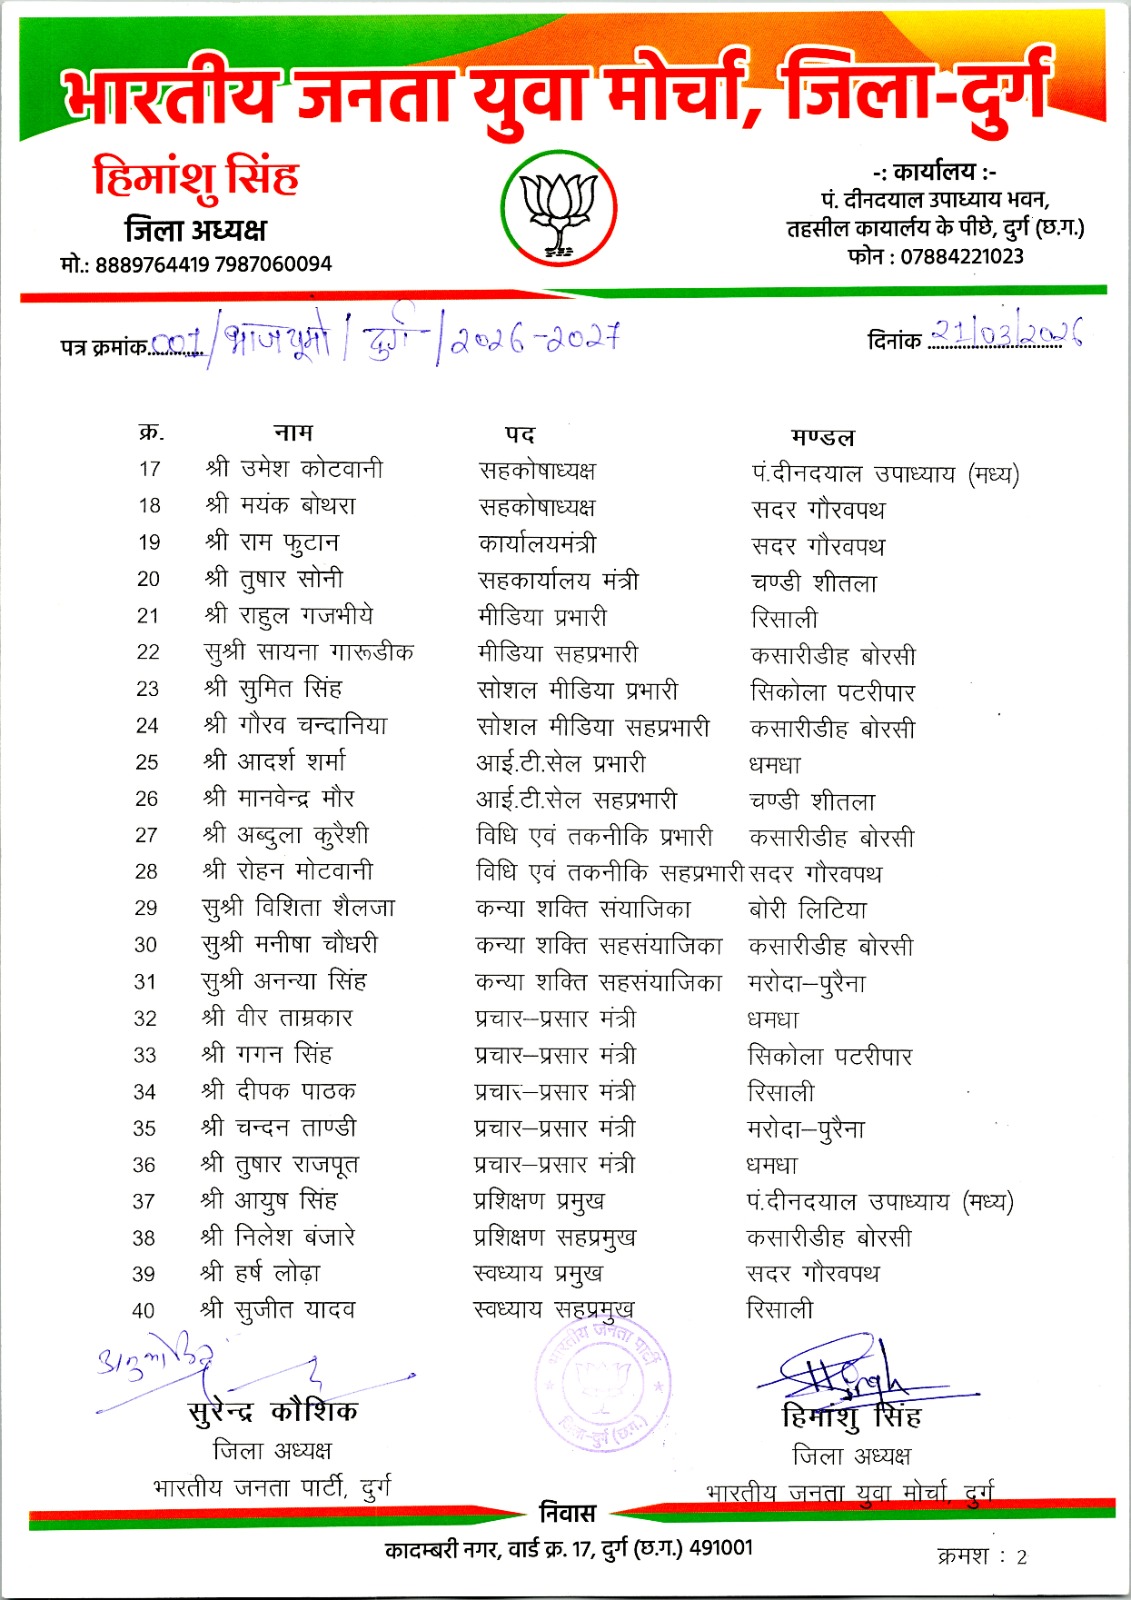 भारतीय जनता युवा मोर्चा, जिला-दुर्ग
हिमांशु सिंह
जिला अध्यक्ष
मो.: 8889764419 7987060094
-: कार्यालय :-
पं. दीनदयाल उपाध्याय भवन,
तहसील कायार्लय के पीछे, दुर्ग (छ.ग.)
फोन : 07884221023
पत्र क्रमांक 001/भाजयूमो/दुर्ग/2026-2027
दिनांक 21/03/2026
क्र. नाम पद मण्डल
17 श्री उमेश कोटवानी सहकोषाध्यक्ष पं.दीनदयाल उपाध्याय (मध्य)
18 श्री मयंक बोथरा सहकोषाध्यक्ष सदर गौरवपथ
19 श्री राम फुटान कार्यालयमंत्री सदर गौरवपथ
20 श्री तुषार सोनी सहकार्यालय मंत्री चण्डी शीतला
21 श्री राहुल गजभीये मीडिया प्रभारी रिसाली
22 सुश्री सायना गारूडीक मीडिया सहप्रभारी कसारीडीह बोरसी
23 श्री सुमित सिंह सोशल मीडिया प्रभारी सिकोला पटरीपार
24 श्री गौरव चन्दानिया सोशल मीडिया सहप्रभारी कसारीडीह बोरसी
25 श्री आदर्श शर्मा आई.टी.सेल प्रभारी धमधा
26 श्री मानवेन्द्र मौर आई.टी.सेल सहप्रभारी चण्डी शीतला
27 श्री अब्दुला कुरैशी विधि एवं तकनीकि प्रभारी कसारीडीह बोरसी
28 श्री रोहन मोटवानी विधि एवं तकनीकि सहप्रभारी सदर गौरवपथ
29 सुश्री विशिता शैलजा कन्या शक्ति संयाजिका बोरी लिटिया
30 सुश्री मनीषा चौधरी कन्या शक्ति सहसंयाजिका कसारीडीह बोरसी
31 सुश्री अनन्या सिंह कन्या शक्ति सहसंयाजिका मरोदा–पुरैना
32 श्री वीर ताम्रकार प्रचार–प्रसार मंत्री धमधा
33 श्री गगन सिंह प्रचार–प्रसार मंत्री सिकोला पटरीपार
34 श्री दीपक पाठक प्रचार–प्रसार मंत्री रिसाली
35 श्री चन्दन ताण्डी प्रचार–प्रसार मंत्री मरोदा–पुरैना
36 श्री तुषार राजपूत प्रचार–प्रसार मंत्री धमधा
37 श्री आयुष सिंह प्रशिक्षण प्रमुख पं.दीनदयाल उपाध्याय (मध्य)
38 श्री निलेश बंजारे प्रशिक्षण सहप्रमुख कसारीडीह बोरसी
39 श्री हर्ष लोढ़ा स्वध्याय प्रमुख सदर गौरवपथ
40 श्री सुजीत यादव स्वध्याय सहप्रमुख रिसाली
भारतीय जनता पार्टी
जिला-दुर्ग (छ.ग.)
सुरेन्द्र कौशिक
जिला अध्यक्ष
भारतीय जनता पार्टी, दुर्ग
हिमांशु सिंह
जिला अध्यक्ष
भारतीय जनता युवा मोर्चा, दुर्ग
निवास
कादम्बरी नगर, वार्ड क्र. 17, दुर्ग (छ.ग.) 491001
क्रमश : 2